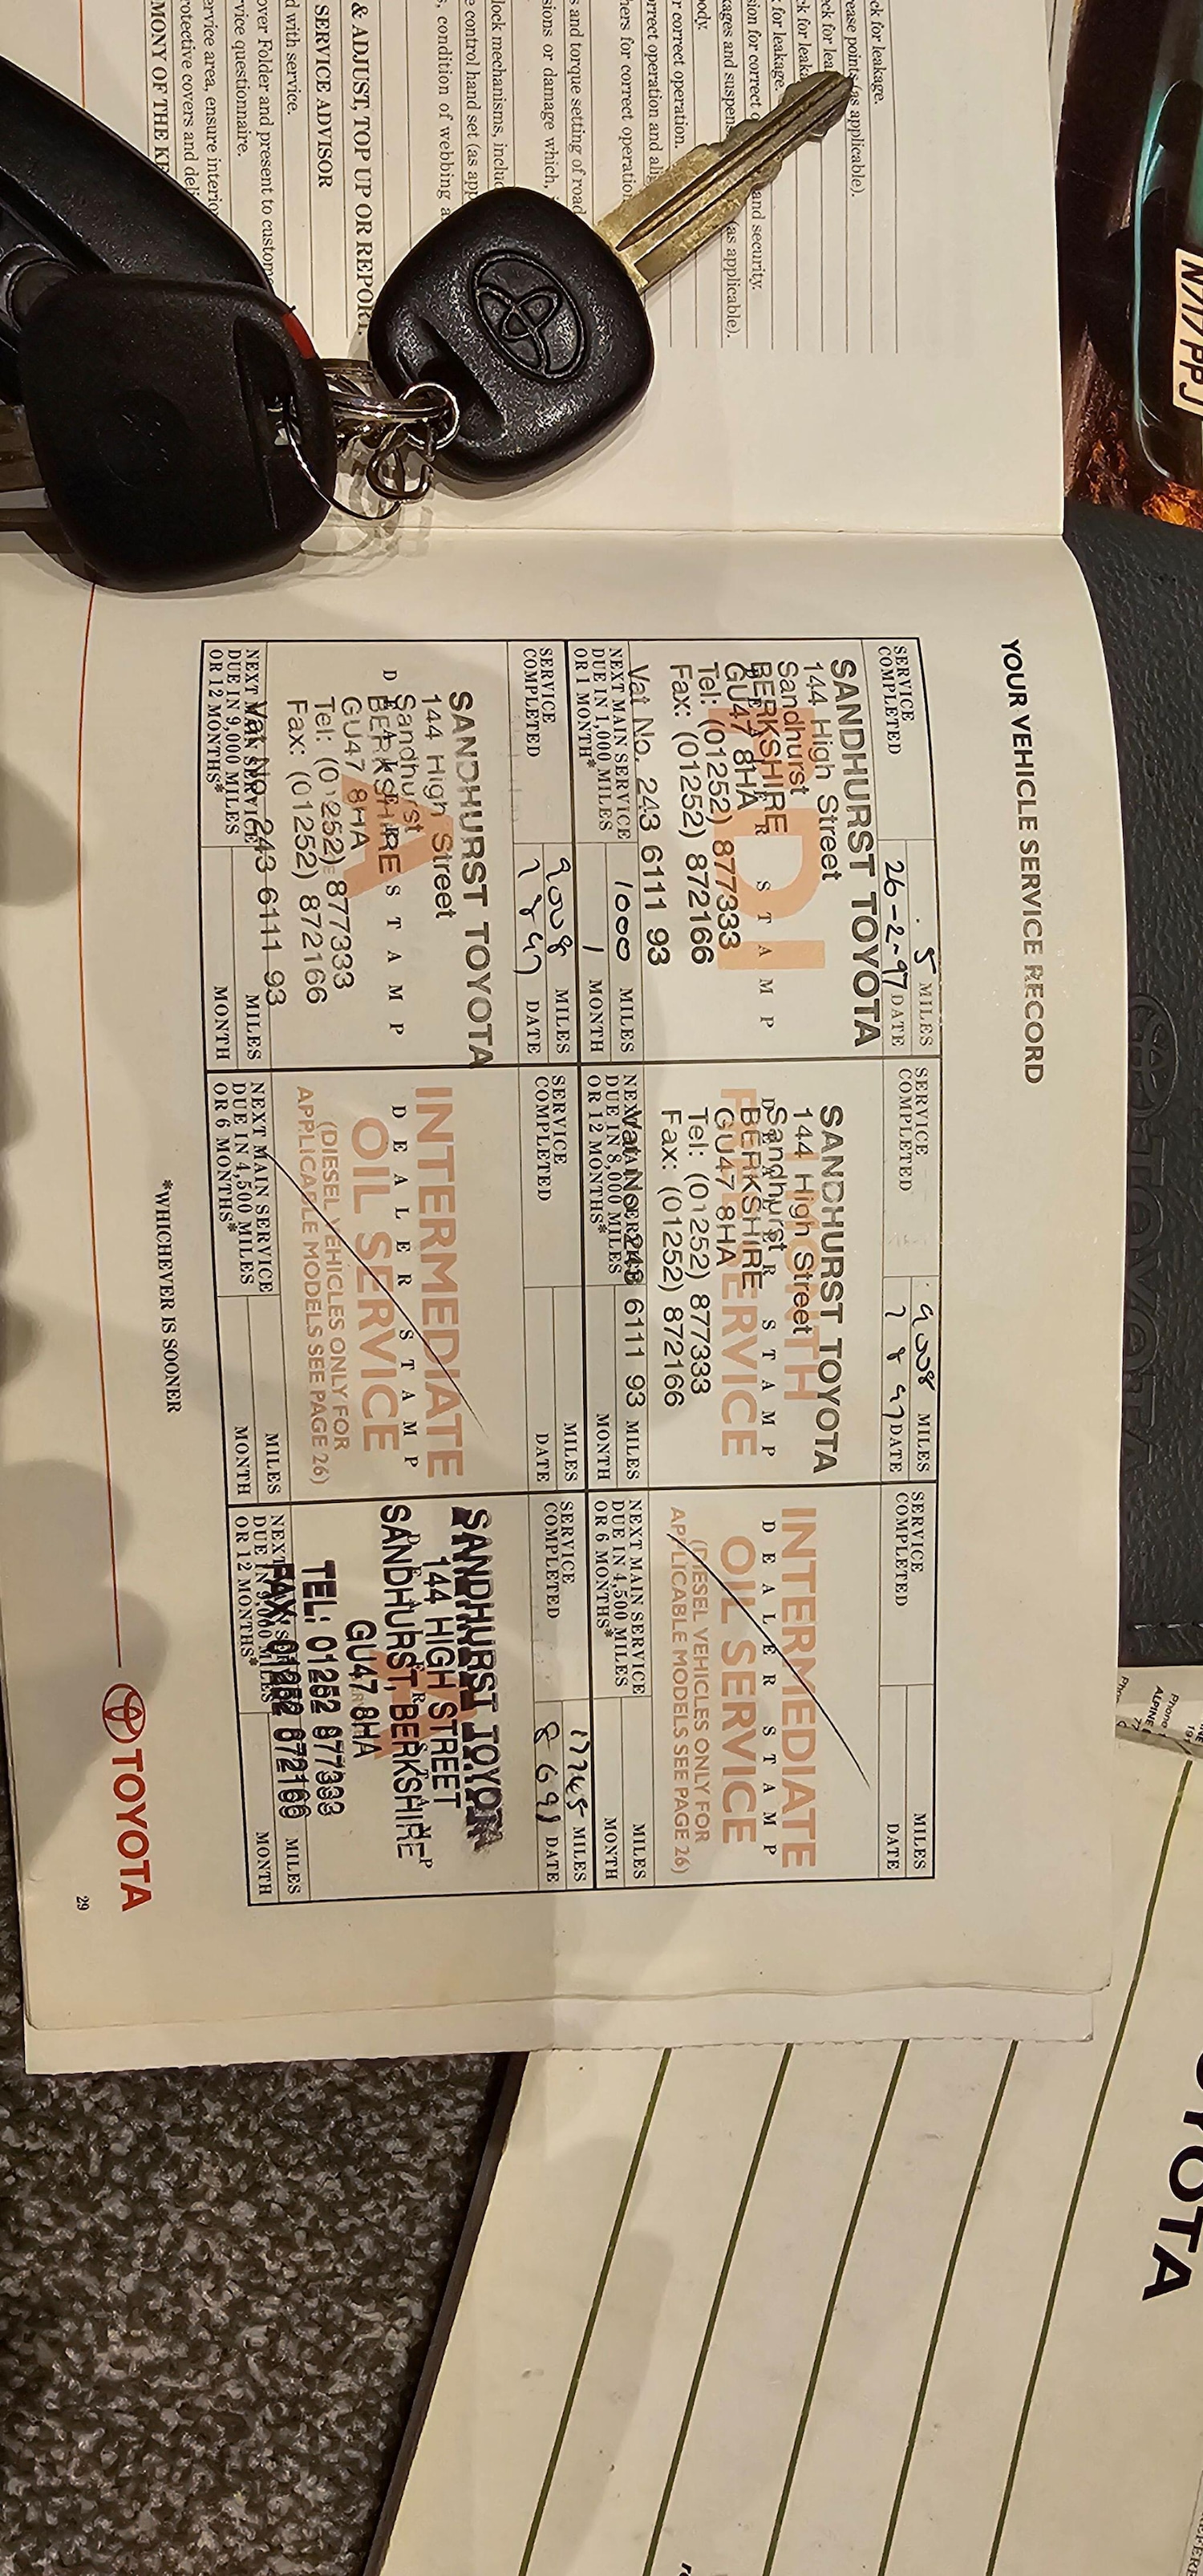 ck for leakage.
rease points (as applicable).
ck for lea
k for leaka
k for leakage.
sion for correct o
and security.
kages and suspen
(as applicable).
ody.
r correct operation.
orrect operation and ali
hers for correct operation
s and torque setting of road
sions or damage which,
lock mechanisms, includ
e control hand set (as app
s, condition of webbing a
& ADJUST, TOP UP OR REPORT
SERVICE ADVISOR
d with service.
over Folder and present to custome
vice questionnaire.
ervice area, ensure interio
rotective covers and deli
MONY OF THE KE
N717PPJ
YOUR VEHICLE SERVICE RECORD
SERVICE
COMPLETED
5 MILES
26-2-97 DATE
PDI
DEALER STAMP
SANDHURST TOYOTA
144 High Street
Sandhurst
BERKSHIRE
GU47 8HA
Tel: (01252) 877333
Fax: (01252) 872166
Vat No. 243 6111 93
NEXT MAIN SERVICE
DUE IN 1,000 MILES
OR 1 MONTH*
1000 MILES
1 MONTH
SERVICE
COMPLETED
9008 MILES
7 8 97 DATE
SERVICE
DEALER STAMP
SANDHURST TOYOTA
144 High Street
Sandhurst
BERKSHIRE
GU47 8HA
Tel: (01252) 877333
Fax: (01252) 872166
Vat No. 243 6111 93
NEXT MAIN SERVICE
DUE IN 8,000 MILES
OR 12 MONTHS*
MILES
MONTH
SERVICE
COMPLETED
MILES
DATE
INTERMEDIATE
DEALER STAMP
OIL SERVICE
(DIESEL VEHICLES ONLY FOR
APPLICABLE MODELS SEE PAGE 26)
NEXT MAIN SERVICE
DUE IN 4,500 MILES
OR 6 MONTHS*
MILES
MONTH
SERVICE
COMPLETED
9008 MILES
7 8 97 DATE
A
DEALER STAMP
SANDHURST TOYOTA
144 High Street
Sandhurst
BERKSHIRE
GU47 8HA
Tel: (01252) 877333
Fax: (01252) 872166
Vat No. 243 6111 93
NEXT MAIN SERVICE
DUE IN 9,000 MILES
OR 12 MONTHS*
MILES
MONTH
SERVICE
COMPLETED
MILES
DATE
INTERMEDIATE
DEALER STAMP
OIL SERVICE
(DIESEL VEHICLES ONLY FOR
APPLICABLE MODELS SEE PAGE 26)
NEXT MAIN SERVICE
DUE IN 4,500 MILES
OR 6 MONTHS*
MILES
MONTH
SERVICE
COMPLETED
MILES
DATE
SANDHURST TOYOTA
144 HIGH STREET
SANDHURST, BERKSHIRE
GU47 8HA
TEL: 01252 877333
FAX: 01252 872166
DUE IN 9,000 MILES
OR 12 MONTHS*
MILES
MONTH
*WHICHEVER IS SOONER
TOYOTA
29
TOYOTA
ALPINE
Phone
OYOTA